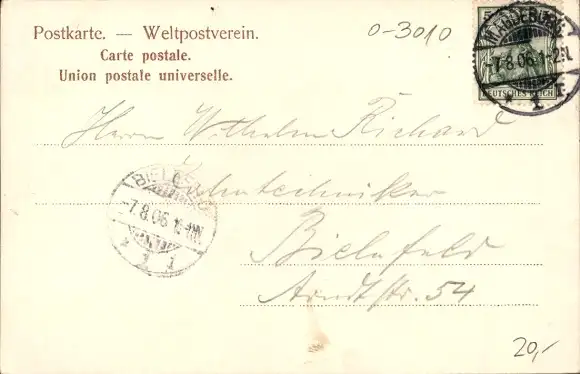 Postkarte. — Weltpostverein.
Carte postale.
Union postale universelle.
0-3010
5
MAGDEBURG
-7.8.06.1-2N.
* 1 I.
DEUTSCHES REICH
Herrn Wilhelm Richard
Zahntechniker
Bielefeld
Arndtstr. 54
BIELEFELD
-7.8.06
* 1 I
20,-